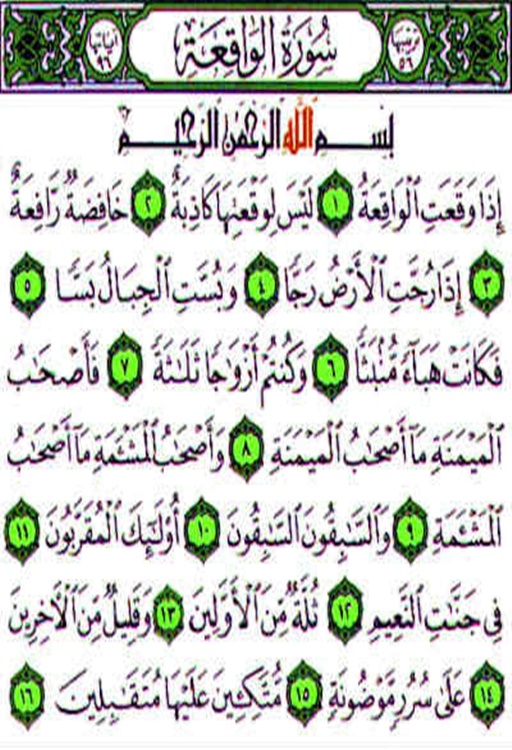 ترتيبها ٥٦ سُورَةُ الوَاقِعَةِ آياتها ٩٦
بِسْمِ اللَّهِ الرَّحْمَٰنِ الرَّحِيمِ
إِذَا وَقَعَتِ ٱلْوَاقِعَةُ ١ لَيْسَ لِوَقْعَتِهَا كَاذِبَةٌ ٢ خَافِضَةٌ رَّافِعَةٌ
٣ إِذَا رُجَّتِ ٱلْأَرْضُ رَجًّا ٤ وَبُسَّتِ ٱلْجِبَالُ بَسًّا ٥
فَكَانَتْ هَبَآءً مُّنۢبَثًّا ٦ وَكُنتُمْ أَزْوَٰجًا ثَلَٰثَةً ٧ فَأَصْحَٰبُ
ٱلْمَيْمَنَةِ مَآ أَصْحَٰبُ ٱلْمَيْمَنَةِ ٨ وَأَصْحَٰبُ ٱلْمَشْـَٔمَةِ مَآ أَصْحَٰبُ
ٱلْمَشْـَٔمَةِ ٩ وَٱلسَّٰبِقُونَ ٱلسَّٰبِقُونَ ١٠ أُو۟لَٰٓئِكَ ٱلْمُقَرَّبُونَ ١١
فِى جَنَّٰتِ ٱلنَّعِيمِ ١٢ ثُلَّةٌ مِّنَ ٱلْأَوَّلِينَ ١٣ وَقَلِيلٌ مِّنَ ٱلْءَاخِرِينَ
١٤ عَلَىٰ سُرُرٍ مَّوْضُونَةٍ ١٥ مُّتَّكِـِٔينَ عَلَيْهَا مُتَقَٰبِلِينَ ١٦